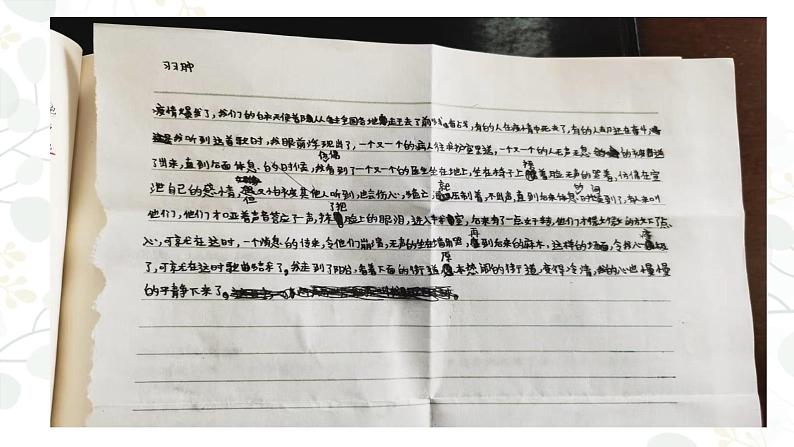 羽聆
疫情爆发了，我们的白衣天使着从全国各地走去了前线。有的人在疫情中死去了，有的人却还在奋斗
我听到这首歌时，我眼前浮现出了，一个又一个的病人往里送，一个又一个的人无声无息的被送
了出来，直到后面休息的时候，仿佛看到了一个又一个的医生坐在地上，坐在椅子上捂着脸无声的哭着，仿佛在宣
泄自己的感情，但又怕被其他人听到，也会伤心，就压制着，不出声，直到后来休息的时间到了，有人来叫
他们，他们才哑着声音答应了一声，抹了把脸上的眼泪，进入手术室，后来有了一点好转，他们才慢慢的放下了点
心，可就在这时，一个消息的传来，令他们崩溃，无声的坐在墙角，再到后来的麻木，这样的场面，令我心
了，可就在这时歌曲结束了。我走到了阳台，看着下面的街道，原本热闹的街道，变得冷清，我的心也慢慢
的平静下来了。